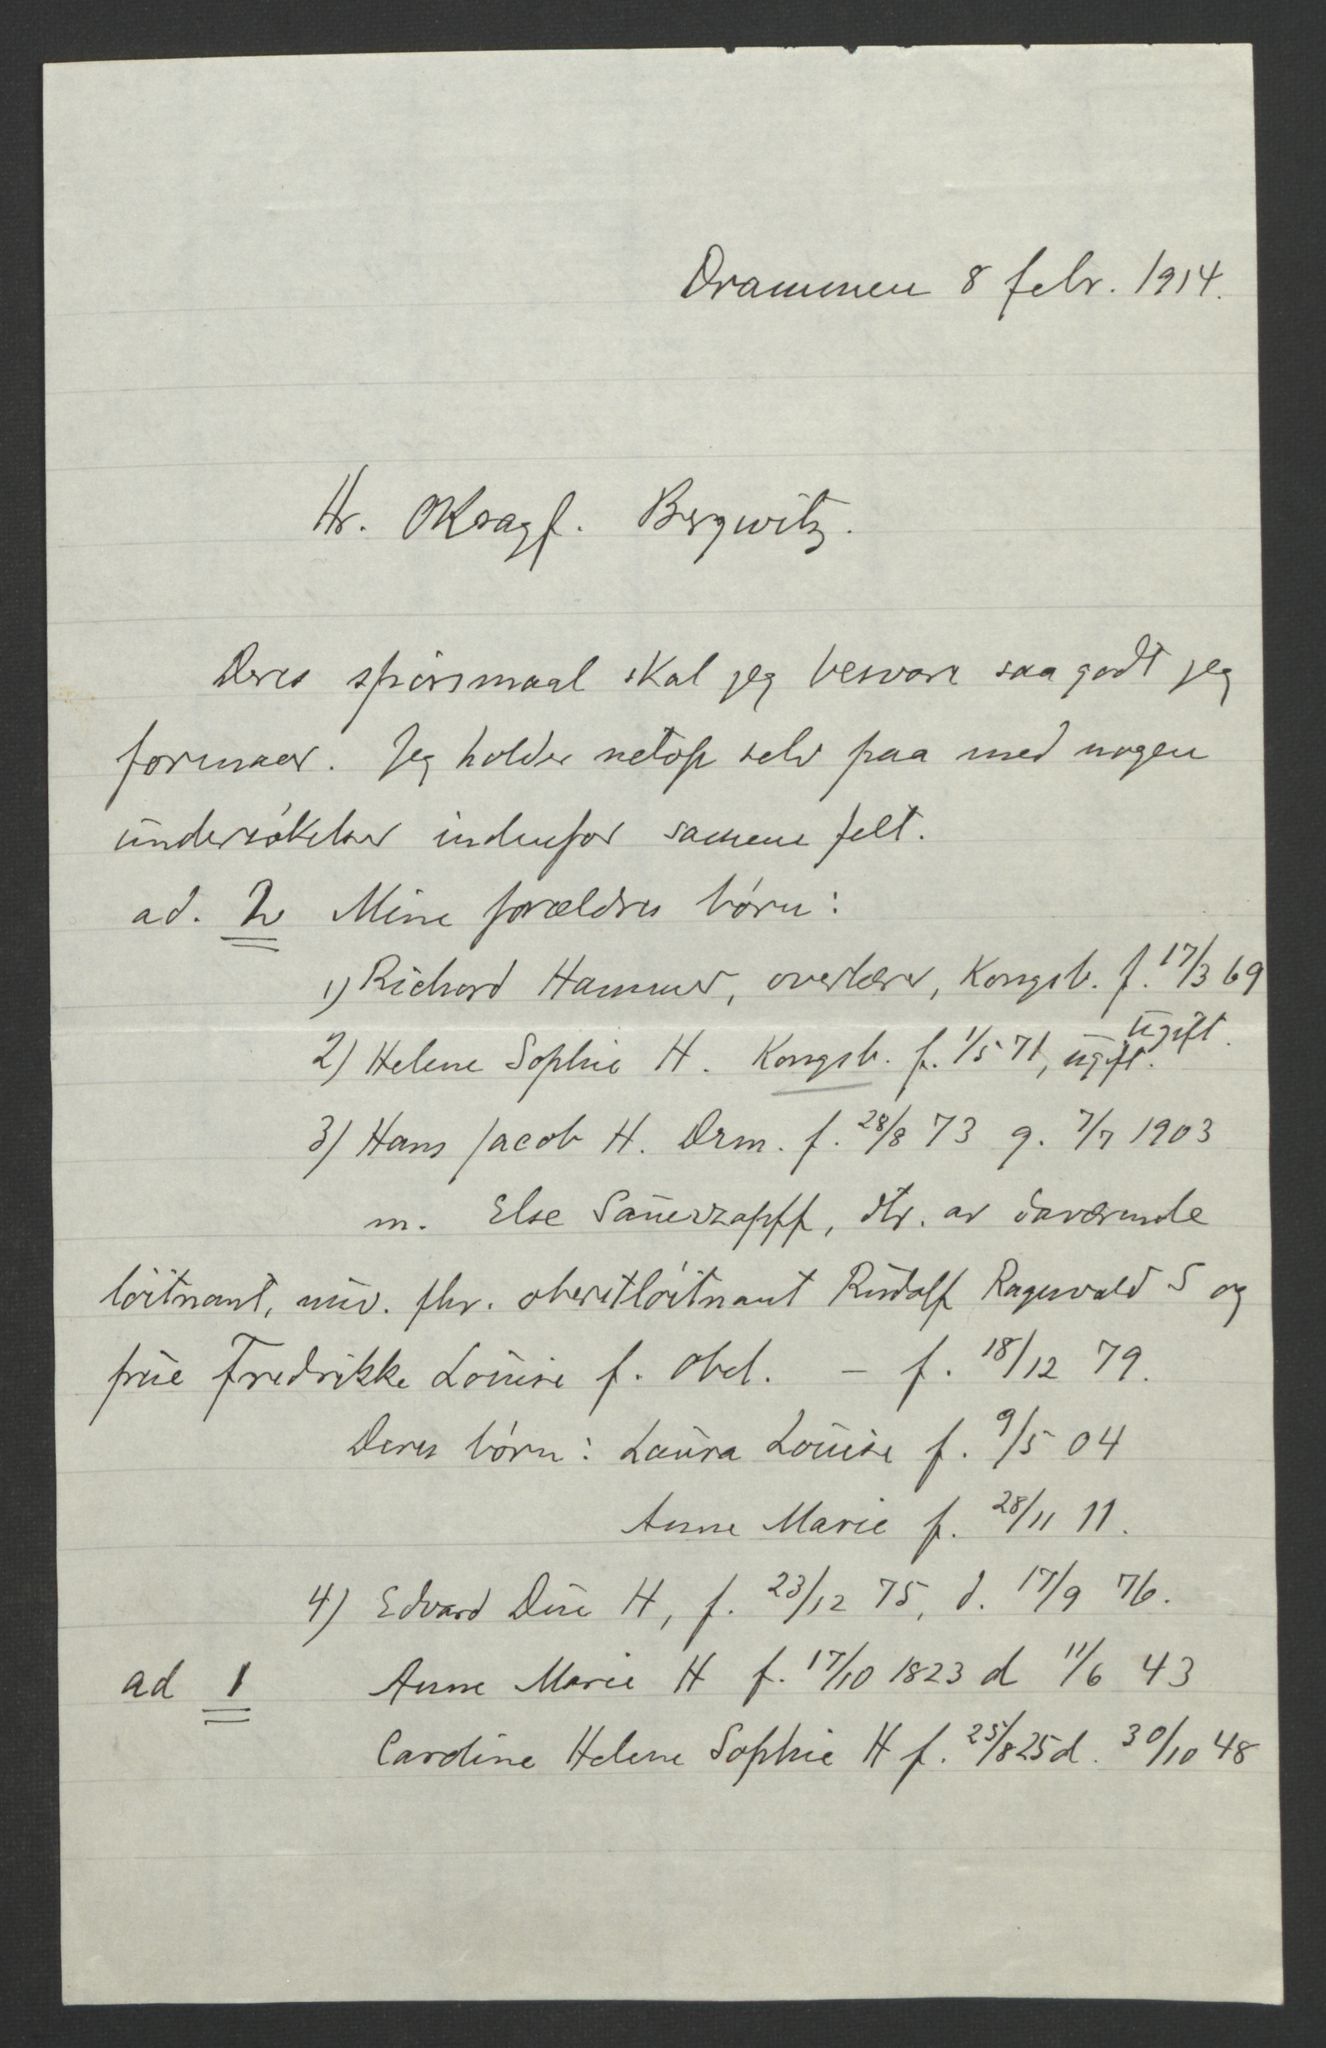 Drammen 8 febr. 1914.
Hr. OKsagf. Bergwitz.
Deres spörsmaal skal jeg besvare saa godt jeg
formaar. Jeg holder netop selv paa med nogen
undersökelser indenfor samme felt.
ad. 2 Mine forældres börn:
1) Richard Hammer, overlærer, Kongsb. f. 17/3 69
ugift.
2) Helene Sophie H. Kongsb. f. 1/5 71, ugift.
3) Hans Jacob H. Drm. f. 28/8 73 g. 7/7 1903
m. Else Sauerzapff, dtr. av daværende
löitnant, nuv. fhv. oberstlöitnant Rudolf Ragnvald S og
frue Fredrikke Louise f. Obel. — f. 18/12 79.
Deres börn: Laura Louise f. 9/5 04
Anne Marie f. 28/11 11.
4) Edvard Due H, f. 23/12 75, d. 17/9 76.
ad 1 Anne Marie H f. 17/10 1823 d 11/6 43
Caroline Helene Sophie H f. 25/8 25 d. 30/10 48